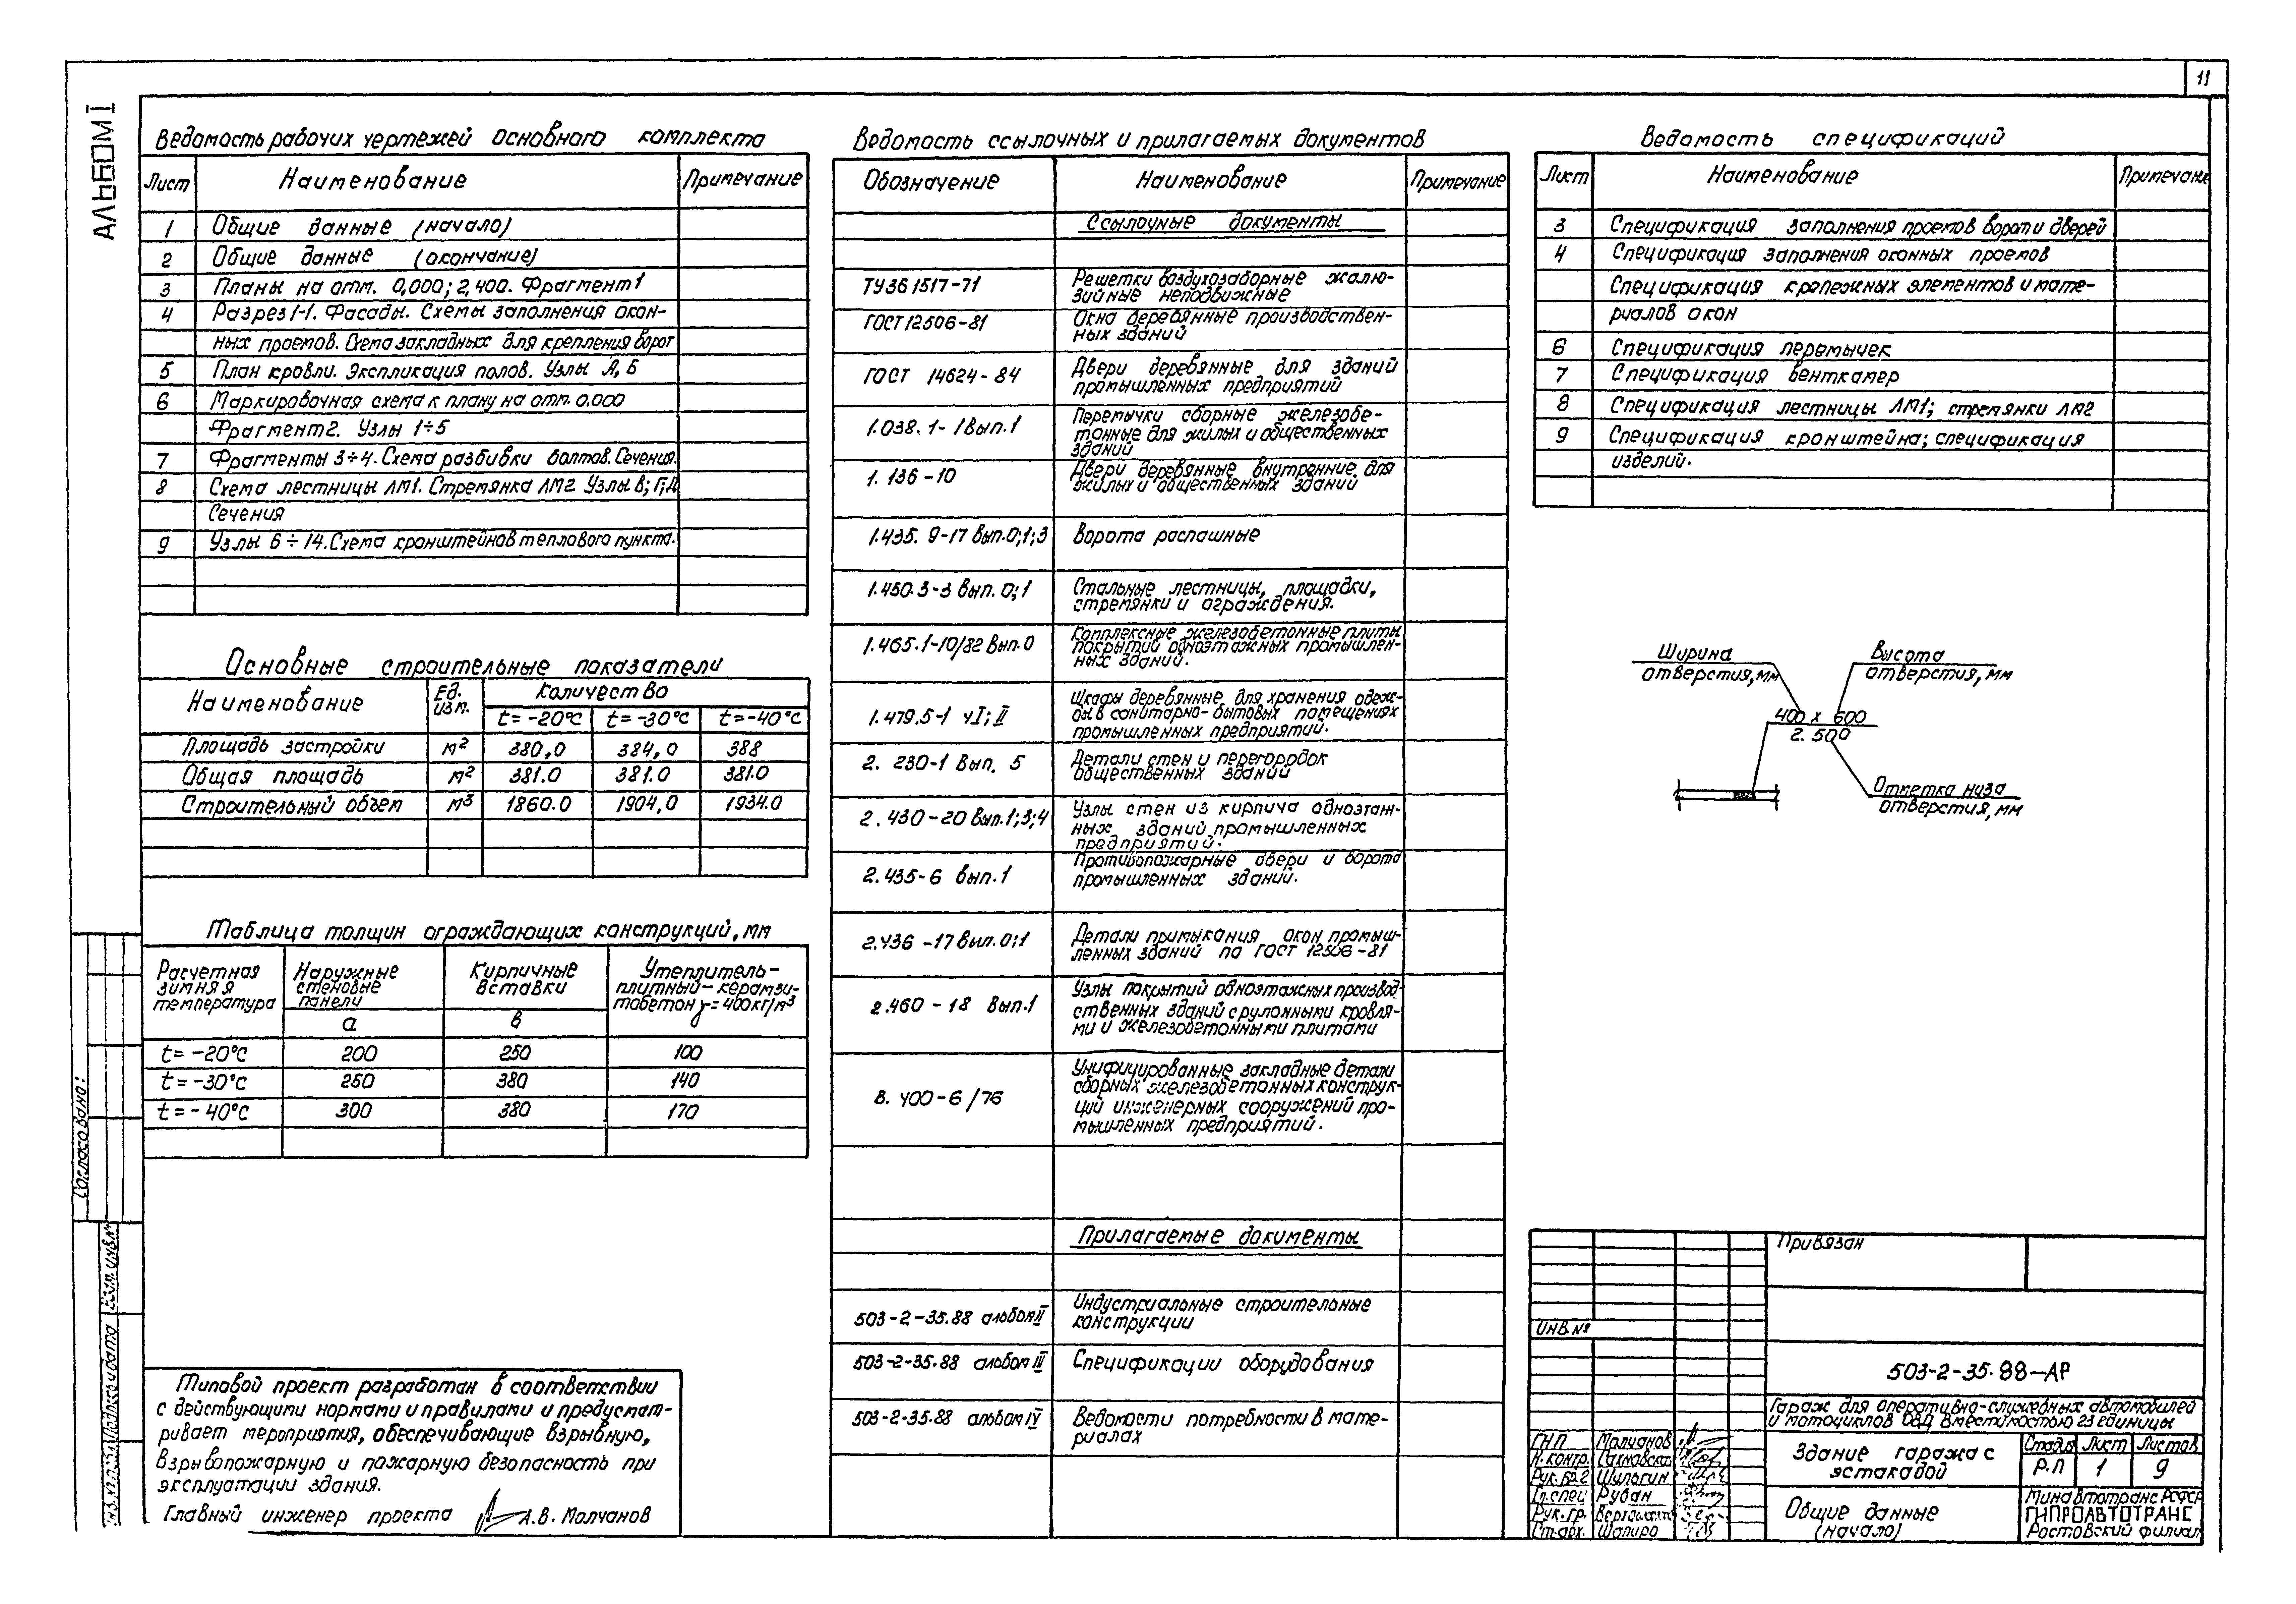 11
АЛЬБОМ I
Ведомость рабочих чертежей основного комплекта
Лист Наименование Примечание
1 Общие данные (начало)
2 Общие данные (окончание)
3 Планы на отм. 0,000; 2,400. Фрагмент 1
4 Разрез 1-1. Фасады. Схемы заполнения окон-
ных проемов. Схема закладных для крепления ворот
5 План кровли. Экспликация полов. Узлы А, Б
6 Маркировочная схема к плану на отм. 0.000
Фрагмент 2. Узлы 1÷5
7 Фрагменты 3÷4. Схема разбивки болтов. Сечения.
8 Схема лестницы ЛМ1. Стремянка ЛМ2 Узлы В; Г; Д
Сечения
9 Узлы 6÷14. Схема кронштейнов теплового пункта.
Основные строительные показатели
Наименование Ед. изм. Количество
t=-20°С t=-30°С t=-40°С
Площадь застройки м² 380,0 384,0 388
Общая площадь м² 381.0 381.0 381.0
Строительный объем м³ 1860.0 1904,0 1934.0
Таблица толщин ограждающих конструкций, мм
Расчетная зимняя температура
Наружные стеновые панели
Кирпичные вставки
Утеплитель-плитный-керамзитобетон γ=400кг/м³
а в б
t=-20°С 200 250 100
t=-30°С 250 380 140
t=-40°С 300 380 170
Типовой проект разработан в соответствии
с действующими нормами и правилами и предусмат-
ривает мероприятия, обеспечивающие взрывную,
взрывопожарную и пожарную безопасность при
эксплуатации здания.
Главный инженер проекта А.В. Молчанов
Ведомость ссылочных и прилагаемых документов
Обозначение Наименование Примечание
Ссылочные документы
ТУ36 1517-71 Решетки воздухозаборные жалю-
зийные неподвижные
ГОСТ 12506-81 Окна деревянные производствен-
ных зданий
ГОСТ 14624-84 Двери деревянные для зданий
промышленных предприятий
1.038.1-1 вып.1 Перемычки сборные железобе-
тонные для жилых и общественных
зданий
1.136-10 Двери деревянные внутренние для
жилых и общественных зданий
1.435.9-17 вып.0;1;3 Ворота распашные
1.450.3-3 вып. 0;1 Стальные лестницы, площадки,
стремянки и ограждения.
1.465.1-10/82 вып.0 Комплексные железобетонные плиты
покрытий одноэтажных промышлен-
ных зданий.
1.479.5-1 ч I; II Шкафы деревянные для хранения одеж-
ды в санитарно-бытовых помещениях
промышленных предприятий.
2.230-1 вып. 5 Детали стен и перегородок
общественных зданий
2.430-20 вып.1;3;4 Узлы стен из кирпича одноэтаж-
ных зданий промышленных
предприятий.
2.435-6 вып.1 Противопожарные двери и ворота
промышленных зданий.
2.436-17 вып.0;1 Детали примыкания окон промыш-
ленных зданий по ГОСТ 12506-81
2.460-18 вып.1 Узлы покрытий одноэтажных производ-
ственных зданий с рулонными кровля-
ми и железобетонными плитами
В.400-6/76 Унифицированные закладные детали
сборных железобетонных конструк-
ций инженерных сооружений про-
мышленных предприятий.
Прилагаемые документы
503-2-35.88 альбом II Индустриальные строительные
конструкции
503-2-35.88 альбом III Спецификации оборудования
503-2-35.88 альбом IV Ведомости потребности в мате-
риалах
Ведомость спецификаций
Лист Наименование Примечание
3 Спецификация заполнения проемов ворот и дверей
4 Спецификация заполнения оконных проемов
Спецификация крепежных элементов и мате-
риалов окон
6 Спецификация перемычек
7 Спецификация венткамер
8 Спецификация лестницы ЛМ1; стремянки ЛМ2
9 Спецификация кронштейна; спецификация
изделий.
Ширина
отверстия, мм
Высота
отверстия, мм
400 х 600
2.500
Отметка низа
отверстия, мм
Привязан
Инв.№
503-2-35.88-АР
Гараж для оперативно-служебных автомобилей
и мотоциклов ОВД вместимостью 23 единицы
ГНП Молчанов
Н.контр. Сахновская
Рук.бр.2 Шульгин
Гл.спец Рубан
Рук.гр.
Ст.арх. Шапиро
Здание гаража с
эстакадой
Стадия Лист Листов
Р.П 1 9
Общие данные
(начало)
Минавтотранс РСФСР
ГИПРОАВТОТРАНС
Ростовский филиал
Согласовано:
Инв.№ подл. Подпись и дата Взам. инв.№